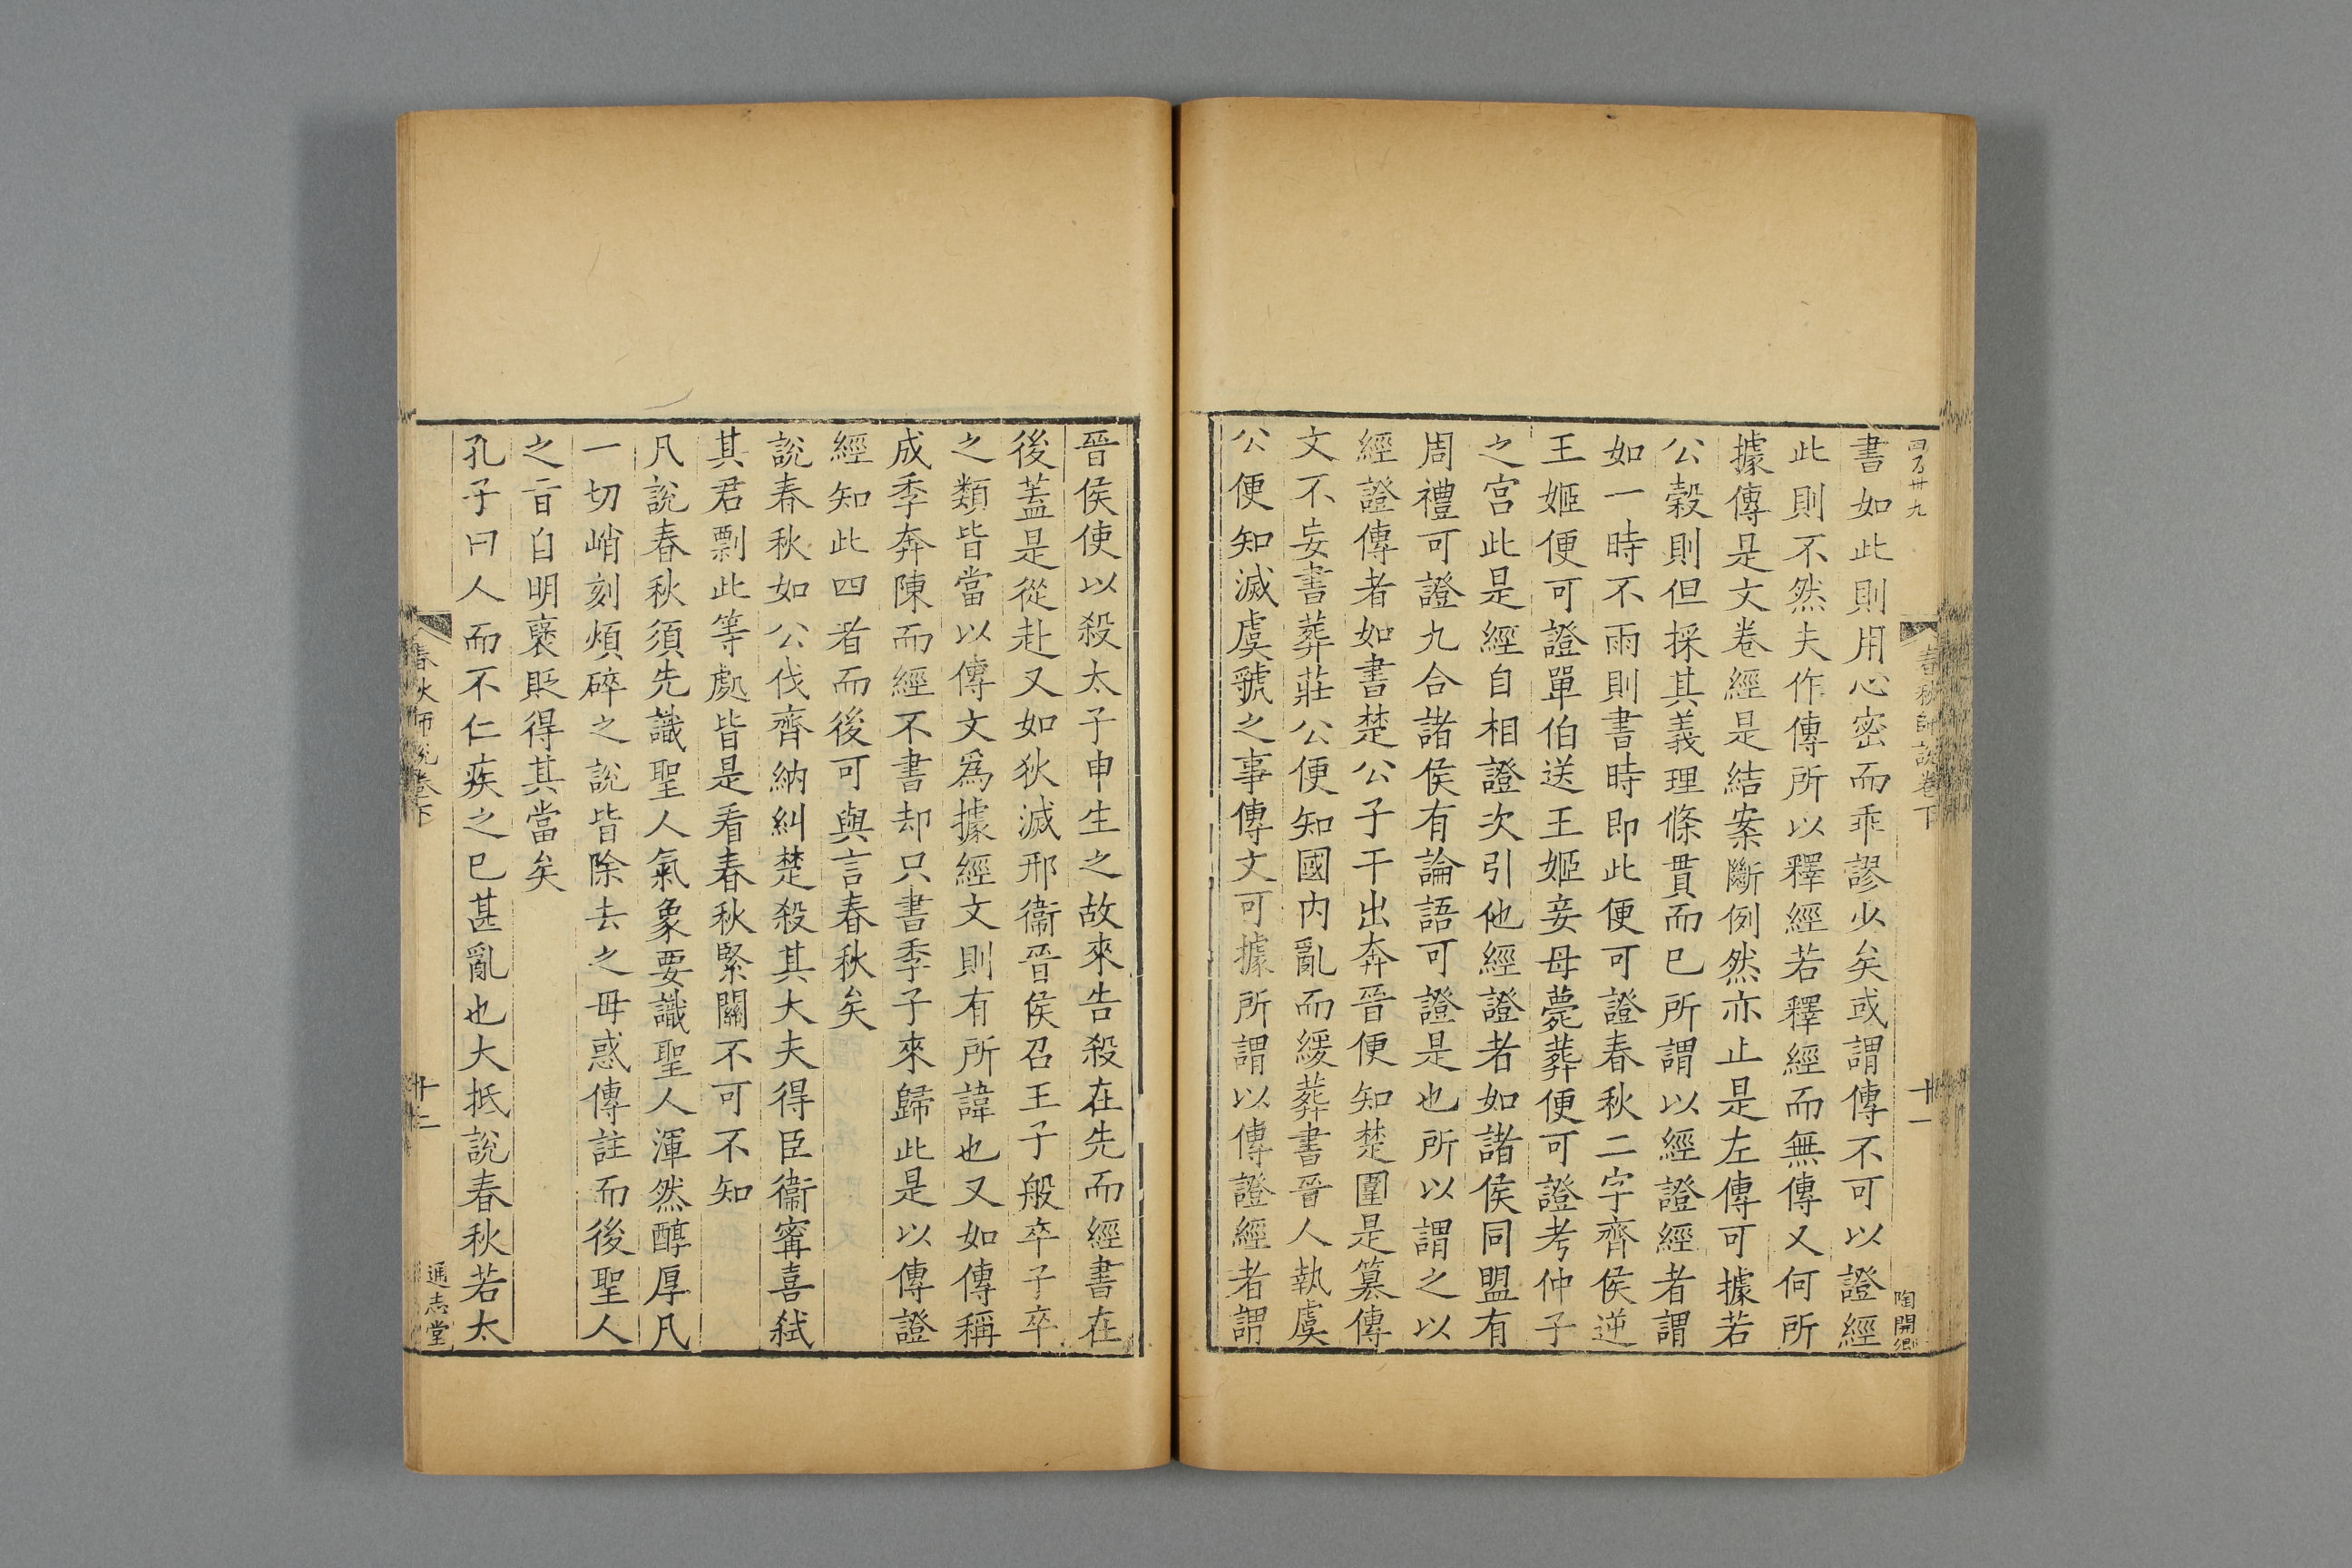 四百卅九
春秋師說卷下
十一
陶開卿
書如此則用心密而乖謬少矣或謂傳不可以證經
此則不然夫作傳所以釋經若釋經而無傳又何所
據傳是文卷經是結案斷例然亦止是左傳可據若
公穀則但採其義理條貫而已所謂以經證經者謂
如一時不雨則書時即此便可證春秋二字齊侯逆
王姬便可證單伯送王姬妾母薨葬便可證考仲子
之宮此是經自相證次引他經證者如諸侯同盟有
周禮可證九合諸侯有論語可證是也所以謂之以
經證傳者如書楚公子干出奔晉便知楚圍是篡傳
文不妄書葬莊公便知國內亂而緩葬書晉人執虞
公便知滅虞虢之事傳文可據所謂以傳證經者謂
晉侯使以殺太子申生之故來告殺在先而經書在
後蓋是從赴又如狄滅邢衞晉侯召王子般卒子卒
之類皆當以傳文爲據經文則有所諱也又如傳稱
成季奔陳而經不書却只書季子來歸此是以傳證
經知此四者而後可與言春秋矣
說春秋如公伐齊納糾楚殺其大夫得臣衞甯喜弒
其君剽此等處皆是看春秋緊關不可不知
凡說春秋須先識聖人氣象要識聖人渾然醇厚凡
一切峭刻煩碎之說皆除去之毋惑傳註而後聖人
之旨自明褒貶得其當矣
孔子曰人而不仁疾之已甚亂也大抵說春秋若太
春秋師說卷下
十二
通志堂